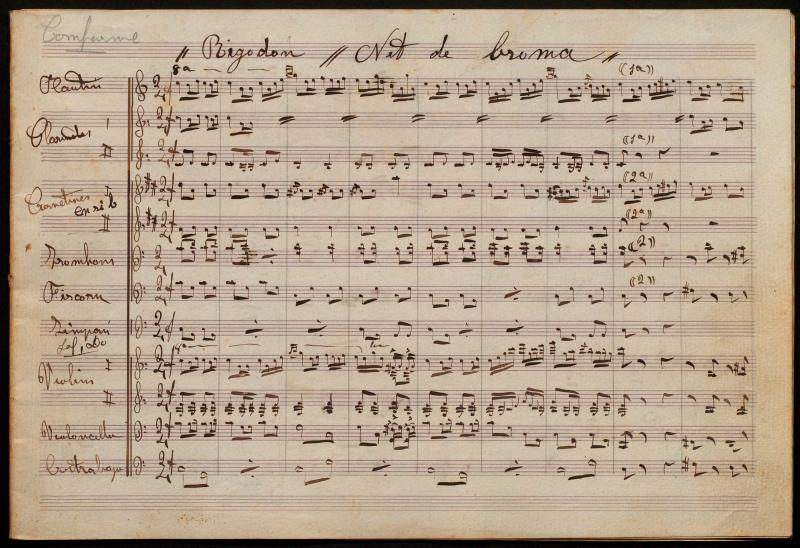 Conforme
" Rigodon " Nit de broma "
8a
Flautin 2/4 (1a)
Clarinetes I
II (1a)
Cornetines I (2a)
en si b
II (2a)
Trombons (2)
Fiscorn (2)
Timpani
Sol, Do
8a
Violins I
II
Violoncello
Contrabajo